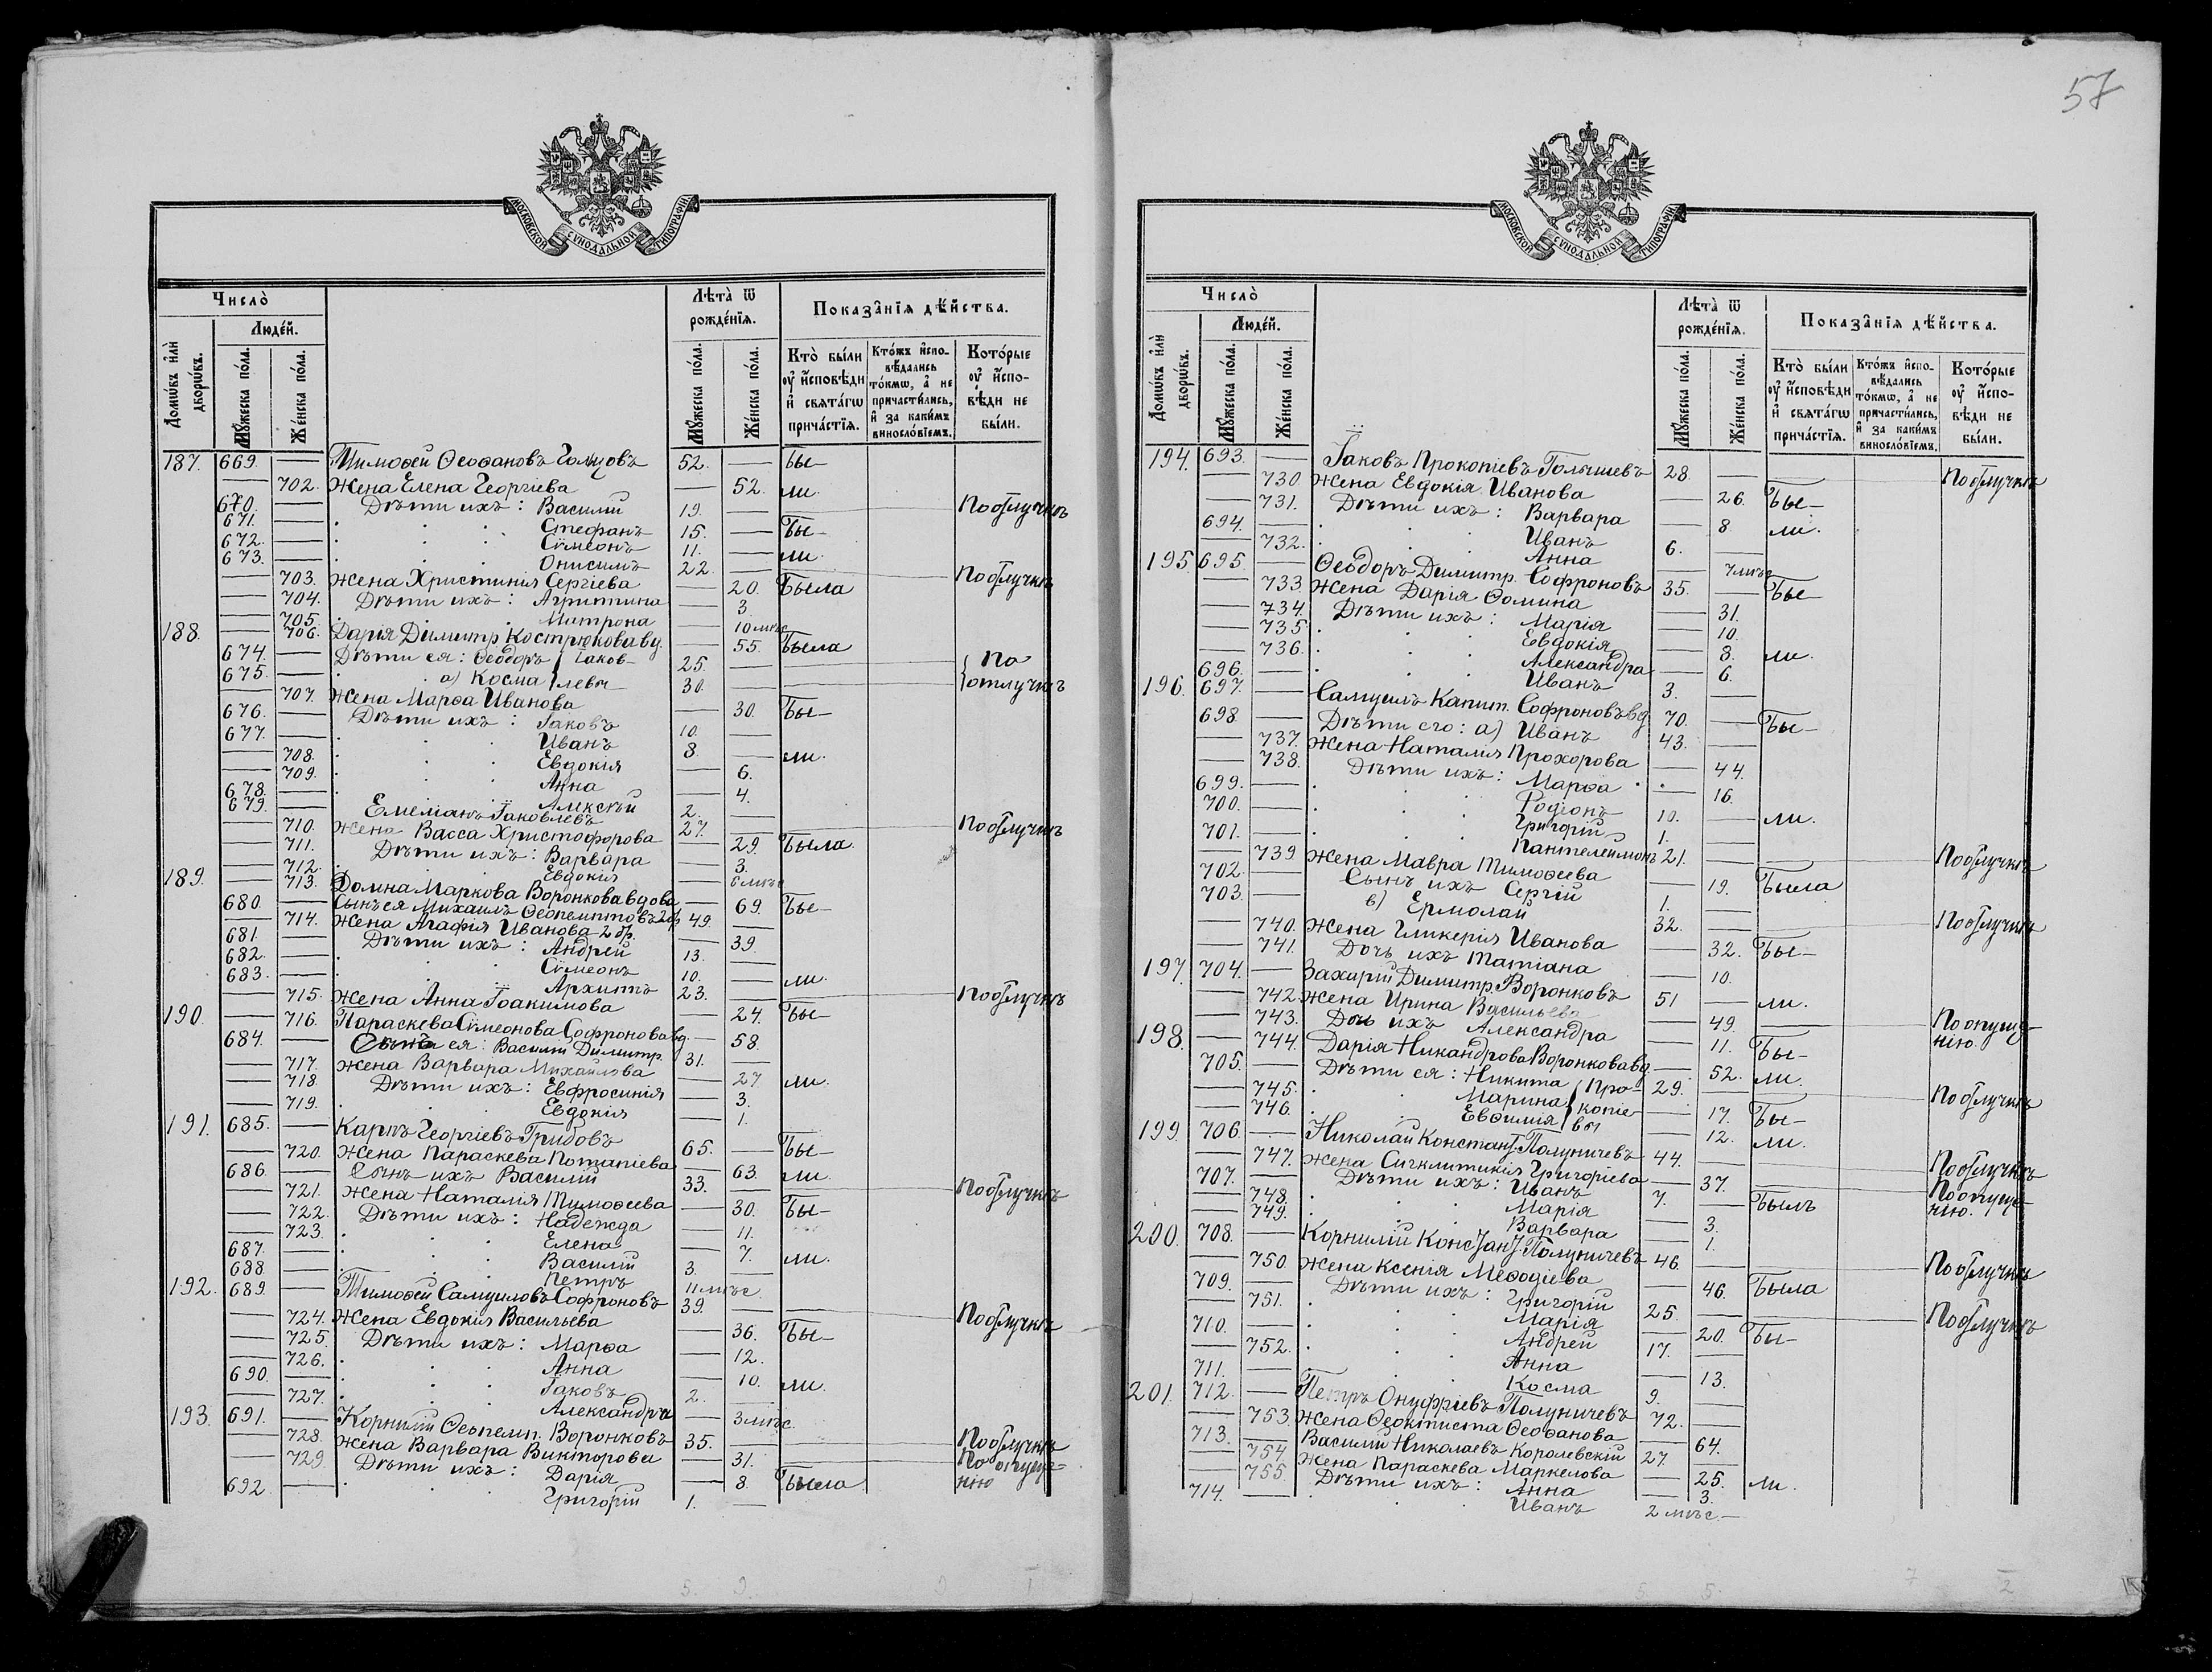 57
МОСКОВСКОЙ СѴНОДАЛЬНОЙ ТИПОГРАФІИ
Число̀
Людéй.
Домѡ́въ и҆лѝ дворѡ́въ.
Мꙋ́жеска по́ла.
Же́нска по́ла.
Лѣта̀ ѿ рожде́нїѧ.
Мꙋ́жеска по́ла.
Же́нска по́ла.
Показа̑нїѧ дѣ́йства.
Кто̀ бы́ли оу҆ и҆́сповѣди и҆ свѧта́гѡ прича́стїѧ.
Кто́жъ и҆спо-вѣ́дались то́кмѡ, а҆ не причасти́лись, и҆ за каки́мъ винословїемъ.
Кото́рые оу҆ и҆спо-вѣди не бы́ли.
187. 669. — Тимоѳей Ѳеофановъ Гольцовъ 52. — Бы-
— 702. Жена Елена Георгіева — 52. ли.
670. — Дѣти ихъ: Василій 19. — По отлучкѣ
671. — Стефанъ 15. — Бы-
672. — Сѵмеонъ 11. — ли.
673. — Онисимъ 22. — По отлучкѣ
— 703. Жена Христинія Сергіева — 20. Была
— 704. Дѣти ихъ: Агриппина — 3.
— 705. Матрона — 10 мѣс
188. — 706. Дарія Димитр. Кострюкова вд. — 55. Была
674. — Дѣти ея: Ѳеодоръ } Іаков- 25. — } По
675. — а) Косма } левы 30. — } отлучкѣ
— 707. Жена Марѳа Иванова — 30. Бы-
676. — Дѣти ихъ: Іаковъ 10. —
677. — Иванъ 8. — ли.
— 708. Евдокія — 6.
— 709. Анна — 4.
678. — Алексѣй 2. —
679. — Емеліанъ Іаковлевъ 27. — По отлучкѣ
— 710. Жена Васса Христофорова — 29. Была
— 711. Дѣти ихъ: Варвара — 3.
— 712. Евдокія — 6 мѣс
189. — 713. Домна Маркова Воронкова вдова — 69. Бы-
680. — Сынъ ея Михаилъ Ѳеопемптовъ 2 бр. 49. —
— 714. Жена Агафія Иванова 2 бр. — 39
681. — Дѣти ихъ: Андрей 13. —
682. — Сѵмеонъ 10. — ли.
683. — Архиппъ 23. — По отлучкѣ
— 715. Жена Анна Іоакимова — 24. Бы-
190. — 716. Параскева Сѵмеонова Софронова вд. — 58.
684. — Сынъ ея: Василій Димитр. 31. —
— 717. Жена Варвара Михайлова — 27. ли.
— 718. Дѣти ихъ: Евфросинія — 3.
— 719. Евдокія — 1.
191. 685. — Карпъ Георгіевъ Грибовъ 65. — Бы-
— 720. Жена Параскева Потапіева — 63. ли
686. — Сынъ ихъ Василій 33. — По отлучкѣ
— 721. Жена Наталія Тимоѳеева — 30. Бы-
— 722. Дѣти ихъ: Надежда — 11.
— 723. Елена — 7. ли.
687. — Василій 3. —
688. — Петръ 11 мѣс
192. 689. — Тимоѳей Самуиловъ Софроновъ 39. — По отлучкѣ
— 724. Жена Евдокія Васильева — 36. Бы-
— 725. Дѣти ихъ: Марѳа — 12.
— 726. Анна — 10. ли.
690. — Іаковъ 2. —
— 727. Александра — 3 мѣс
193. 691. — Корнилій Ѳеопемп. Воронковъ 35. — По отлучкѣ
— 728. Жена Варвара Викторова — 31. По опуще-
— 729. Дѣти ихъ: Дарія — 8. Была нію
692. — Григорій 1. —
194. 693. — Іаковъ Прокопіевъ Голышевъ 28. — По отлучкѣ
— 730. Жена Евдокія Иванова — 26. Бы-
— 731. Дѣти ихъ: Варвара — 8. ли.
694. — Иванъ 6. —
— 732. Анна — 7 мѣс
195. 695. — Ѳеодоръ Димитр. Софроновъ 35. — Бы-
— 733. Жена Дарія Ѳомина — 31.
— 734. Дѣти ихъ: Марія — 10.
— 735. Евдокія — 8. ли.
— 736. Александра — 6.
696. — Иванъ 3. —
196. 697. — Самуилъ Капит. Софроновъ вд. 70. — Бы-
698. — Дѣти его: а) Иванъ 43. —
— 737. Жена Наталія Прохорова — 44.
— 738. Дѣти ихъ: Марѳа — 16.
699. — Родіонъ 10. — ли.
700. — Григорій 1. —
701. — Пантелеимонъ 21. — По отлучкѣ
— 739. Жена Мавра Тимоѳеева — 19. Была
702. — Сынъ ихъ Сергій 1. —
703. — в) Ермолай 32. — По отлучкѣ
— 740. Жена Гликерія Иванова — 32. Бы-
— 741. Дочь ихъ Татіана — 10.
197. 704. — Захарій Димитр. Воронковъ 51 — ли.
— 742. Жена Ирина Васильева — 49. По опуще-
— 743. Дочь ихъ Александра — 11. Бы- нію.
198. — 744. Дарія Никандрова Воронкова вд. — 52. ли.
705. — Дѣти ея: Никита } Про- 29. — По отлучкѣ
— 745. Марина } копіе- — 17. Бы-
— 746. Евѳимія } вы — 12. ли.
199. 706. — Николай Констант. Полуничевъ 44. — По отлучкѣ
— 747. Жена Сигклитикія Григоріева — 37. По опуще-
707. — Дѣти ихъ: Иванъ 7. — Былъ нію.
— 748. Марія — 3.
— 749. Варвара — 1.
200. 708. — Корнилій Констант. Полуничевъ 46. — По отлучкѣ
— 750. Жена Ксенія Меѳодіева — 46. Была
709. — Дѣти ихъ: Григорій 25. — По отлучкѣ
— 751. Марія — 20. Бы-
710. — Андрей 17. —
— 752. Анна — 13.
711. — Косма 9. —
201. 712. — Петръ Онуфріевъ Полуничевъ 72. —
— 753. Жена Ѳеоктиста Ѳеофанова — 64.
713. — Василій Николаевъ Королевскій 27. —
— 754. Жена Параскева Маркелова — 25. ли.
— 755. Дѣти ихъ: Анна — 3.
714. — Иванъ 2 мѣс. —